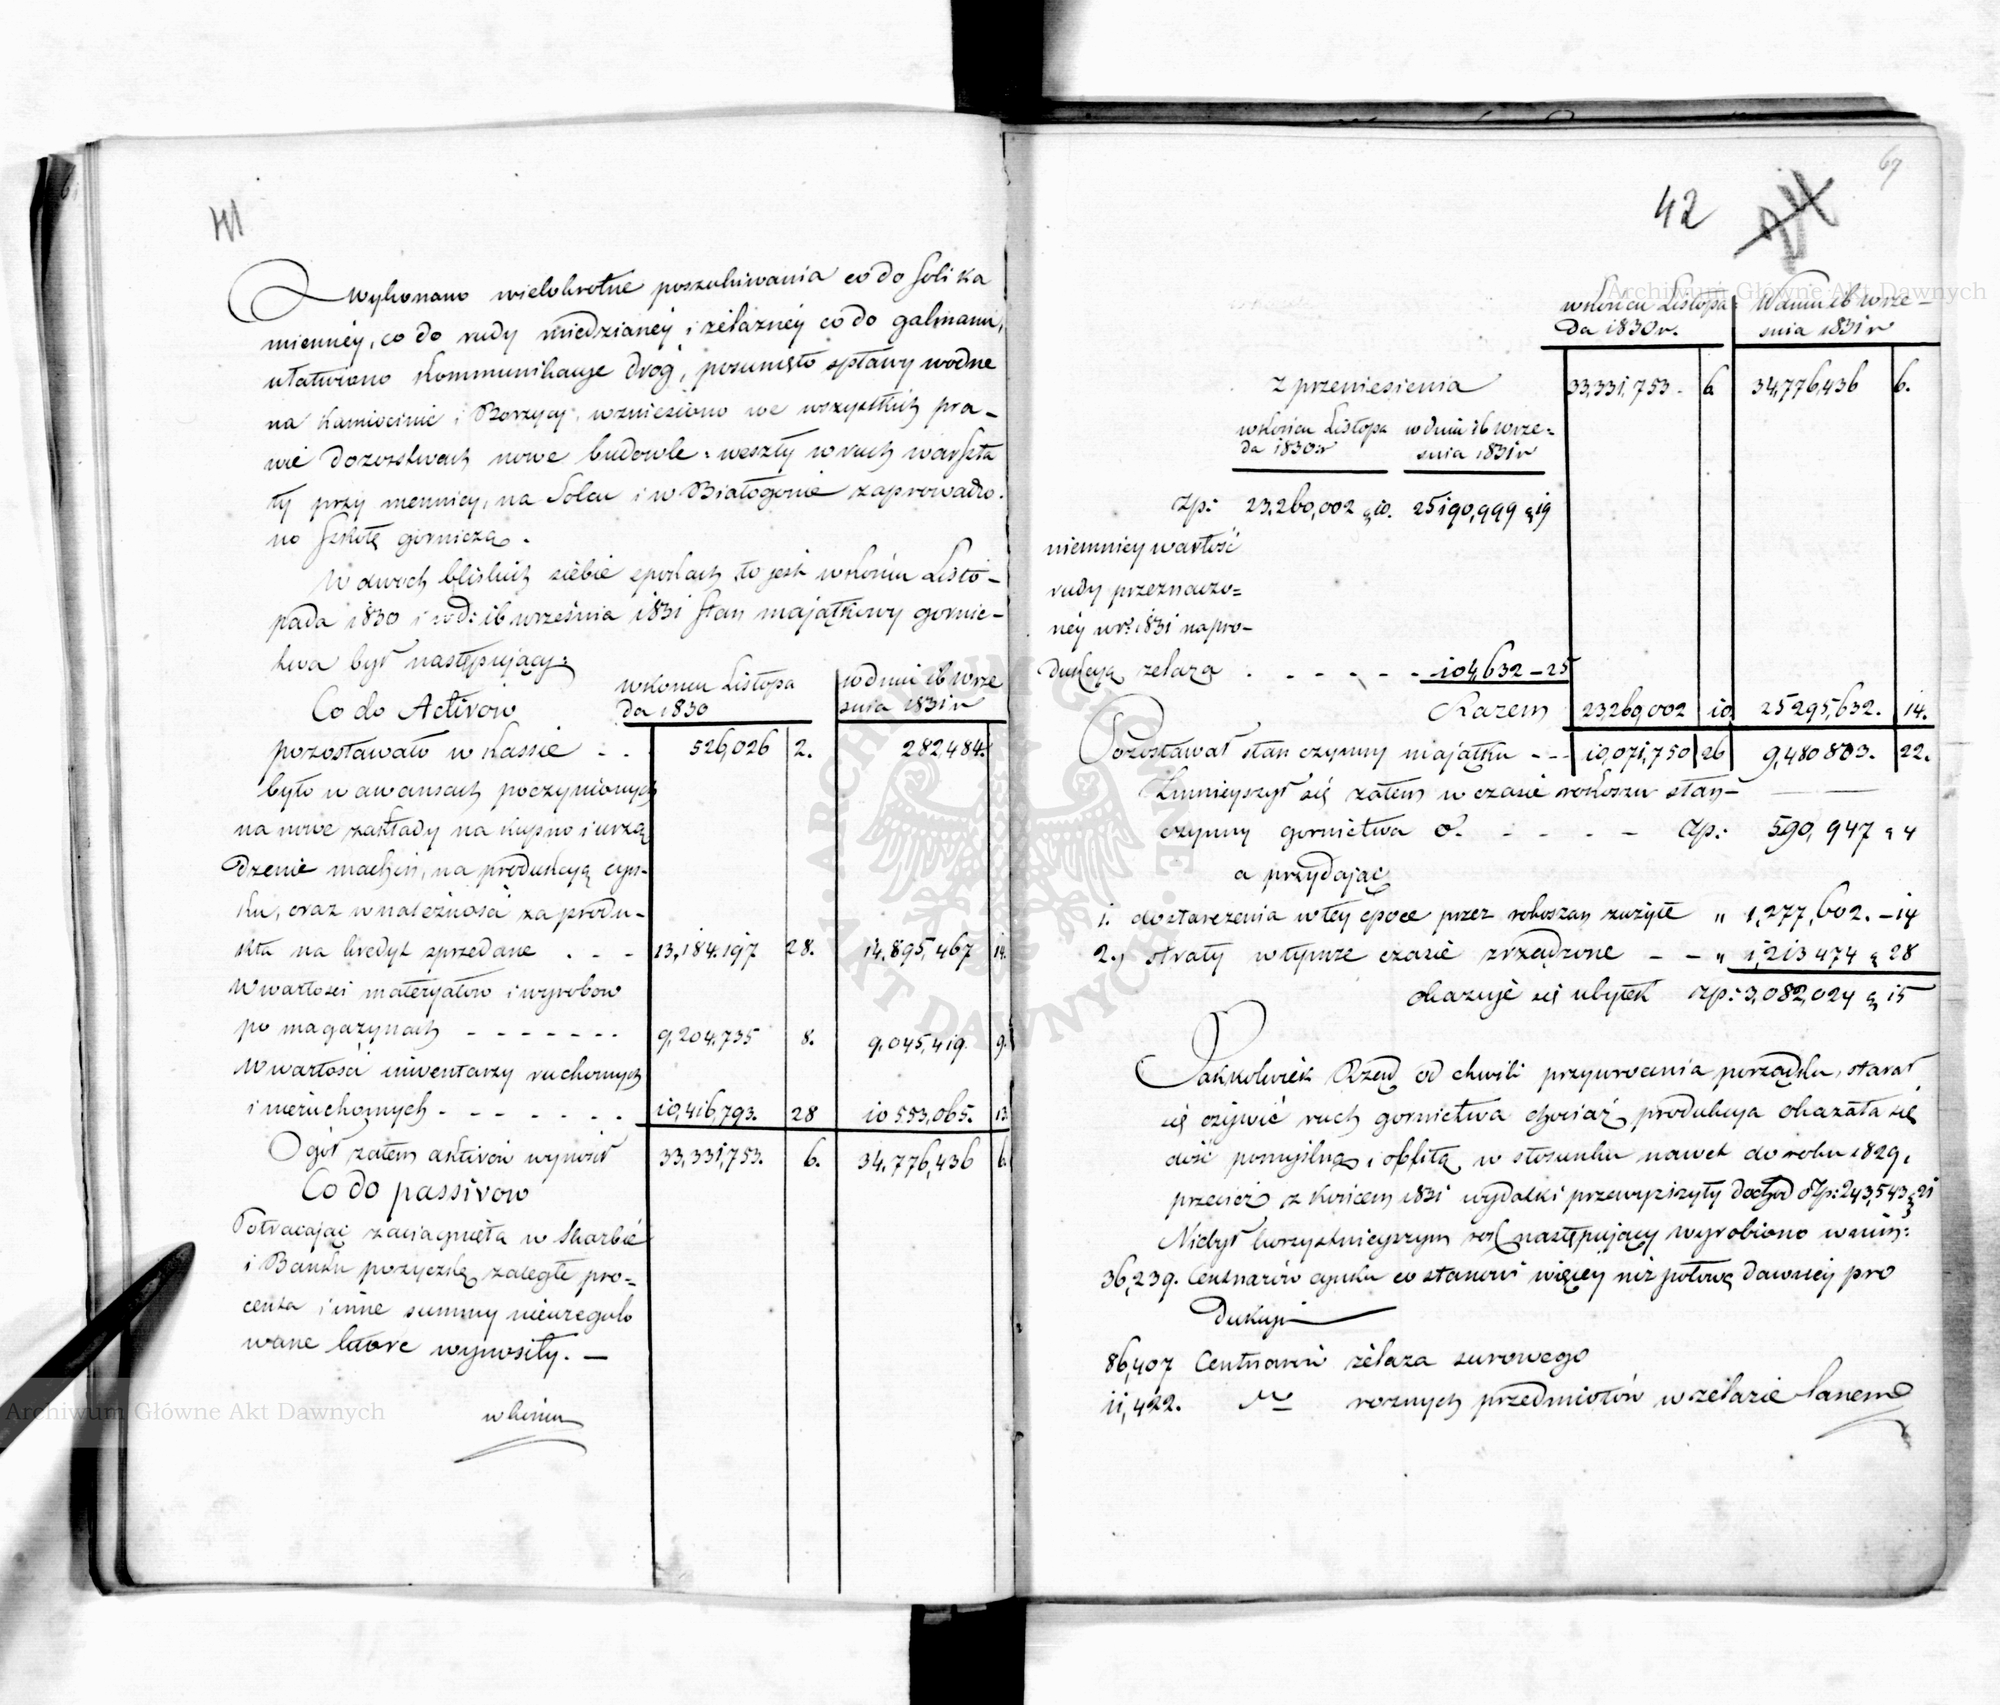 41
Wykonano wielokrotne poszukiwania co do soli ka
mienney, co do rudy miedzianey i żelazney co do galmanu,
ułatwiono kommunikacye dróg, posunięto spławy wodne
na Kamiennie i Borzycy, wzniesiono we wszystkich pra-
wie dozorstwach nowe budowle, weszły w ruch warszta
ty przy mennicy, na Solcu i w Białogonie zaprowadzo-
no szkołę gorniczą.
W dwoch bliskich siebie epokach, to jest w końcu Listo-
pada 1830 i w d: 16 września 1831 stan majątkowy gornic-
twa był następujący:
Co do Activow
w koncu Listopa
da 1830
w dniu 16 wrze
snia 1831 r
pozostawało w kassie - - 526,026 2. 282,484.
było w awansach poczynionych
na nowe zakłady na kupno i urzą
dzenie machin, na produkcyą cyn-
ku, oraz w należności za produ-
kta na kredyt sprzedane . - - 13,184,197 28. 14,895,467 14.
W wartości materyałow i wyrobow
po magazynach - - - - - - - 9,204,735 8. 9,045,419. 9.
W wartości inwentarzy ruchomych
i nieruchomych - - - - - - - 10,416,793. 28 10 553,065. 13
Ogół zatem aktivów wynosił 33,331,753. 6. 34,776,436 6.
Co do passivow
Potrącając zaciągnięta w Skarbie
i Banku pożyczkę zaległe pro-
centa i inne summy nieuregulo
wane które wynosiły. —
w końcu
67
42
24
w końcu Listopa
da 1830 r.
W dniu 16 wrze-
snia 1831 r
z przeniesienia 33,331,753. 6 34,776,436 6.
w końcu Listopa
da 1830 r
w dniu 16 wrze-
snia 1831 r
Zp: 23,260,002 g 10. 25190,999 g 19
niemniey wartość
rudy przeznaczo-
ney w r. 1831 na pro-
dukcyą żelaza . - - - - - 104,632 - 25
Razem 23,260,002 10 25 295,632. 14.
Pozostawał stan czynny majątku - - - 10,071,750 26 9,480 803. 22.
Zmnieyszył się zatem w czasie rokoszu stan
czynny gornictwa o. - - - - Zp: 590,947 g 4
a przydając
1. dostarczenia w tey epoce przez rokoszan zużyte " 1,277,602. - 14
2., straty w tymże czasie zrządzone - - " 1,213 474 g 28
okazuje się ubytek Zp: 3,082,024 g 15
Jakkolwiek Rząd od chwili przywrocenia porządku, starał
się ożywić ruch gornictwa chociaż produkcya okazała się
dość pomyślną i obfitą w stosunku nawet do roku 1829,
przecież z końcem 1831 wydatki przewyższyły dochod Zp: 243,543 g 21
Niebył korzystnieyszym rok następujący wyrobiono w nim:
36,239. Centnarów cynku co stanowi więcey niż połowę dawney pro
dukcyi
86,407 Centnarów żelaza surowego
11,422. rożnych przedmiotów w żelazie lanem